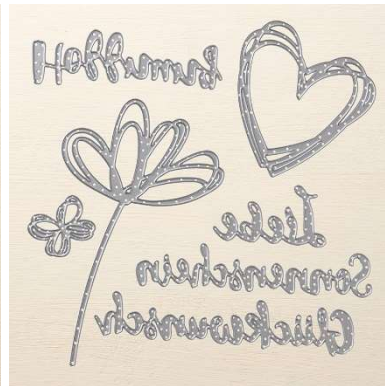 Hoffnung
Liebe
Sonnenschein
Glückwunsch